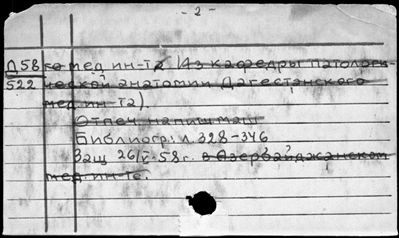 - 2 -
Д58 го мед. ин-та (Из кафедры патологи-
522 ческой анатомии Дагестанского
мед. ин-та).
Отпеч. на пиш. маш.
Библиогр: л. 328-346
Защ 26/V-58г. в Азербайджанском
мед. ин-те.